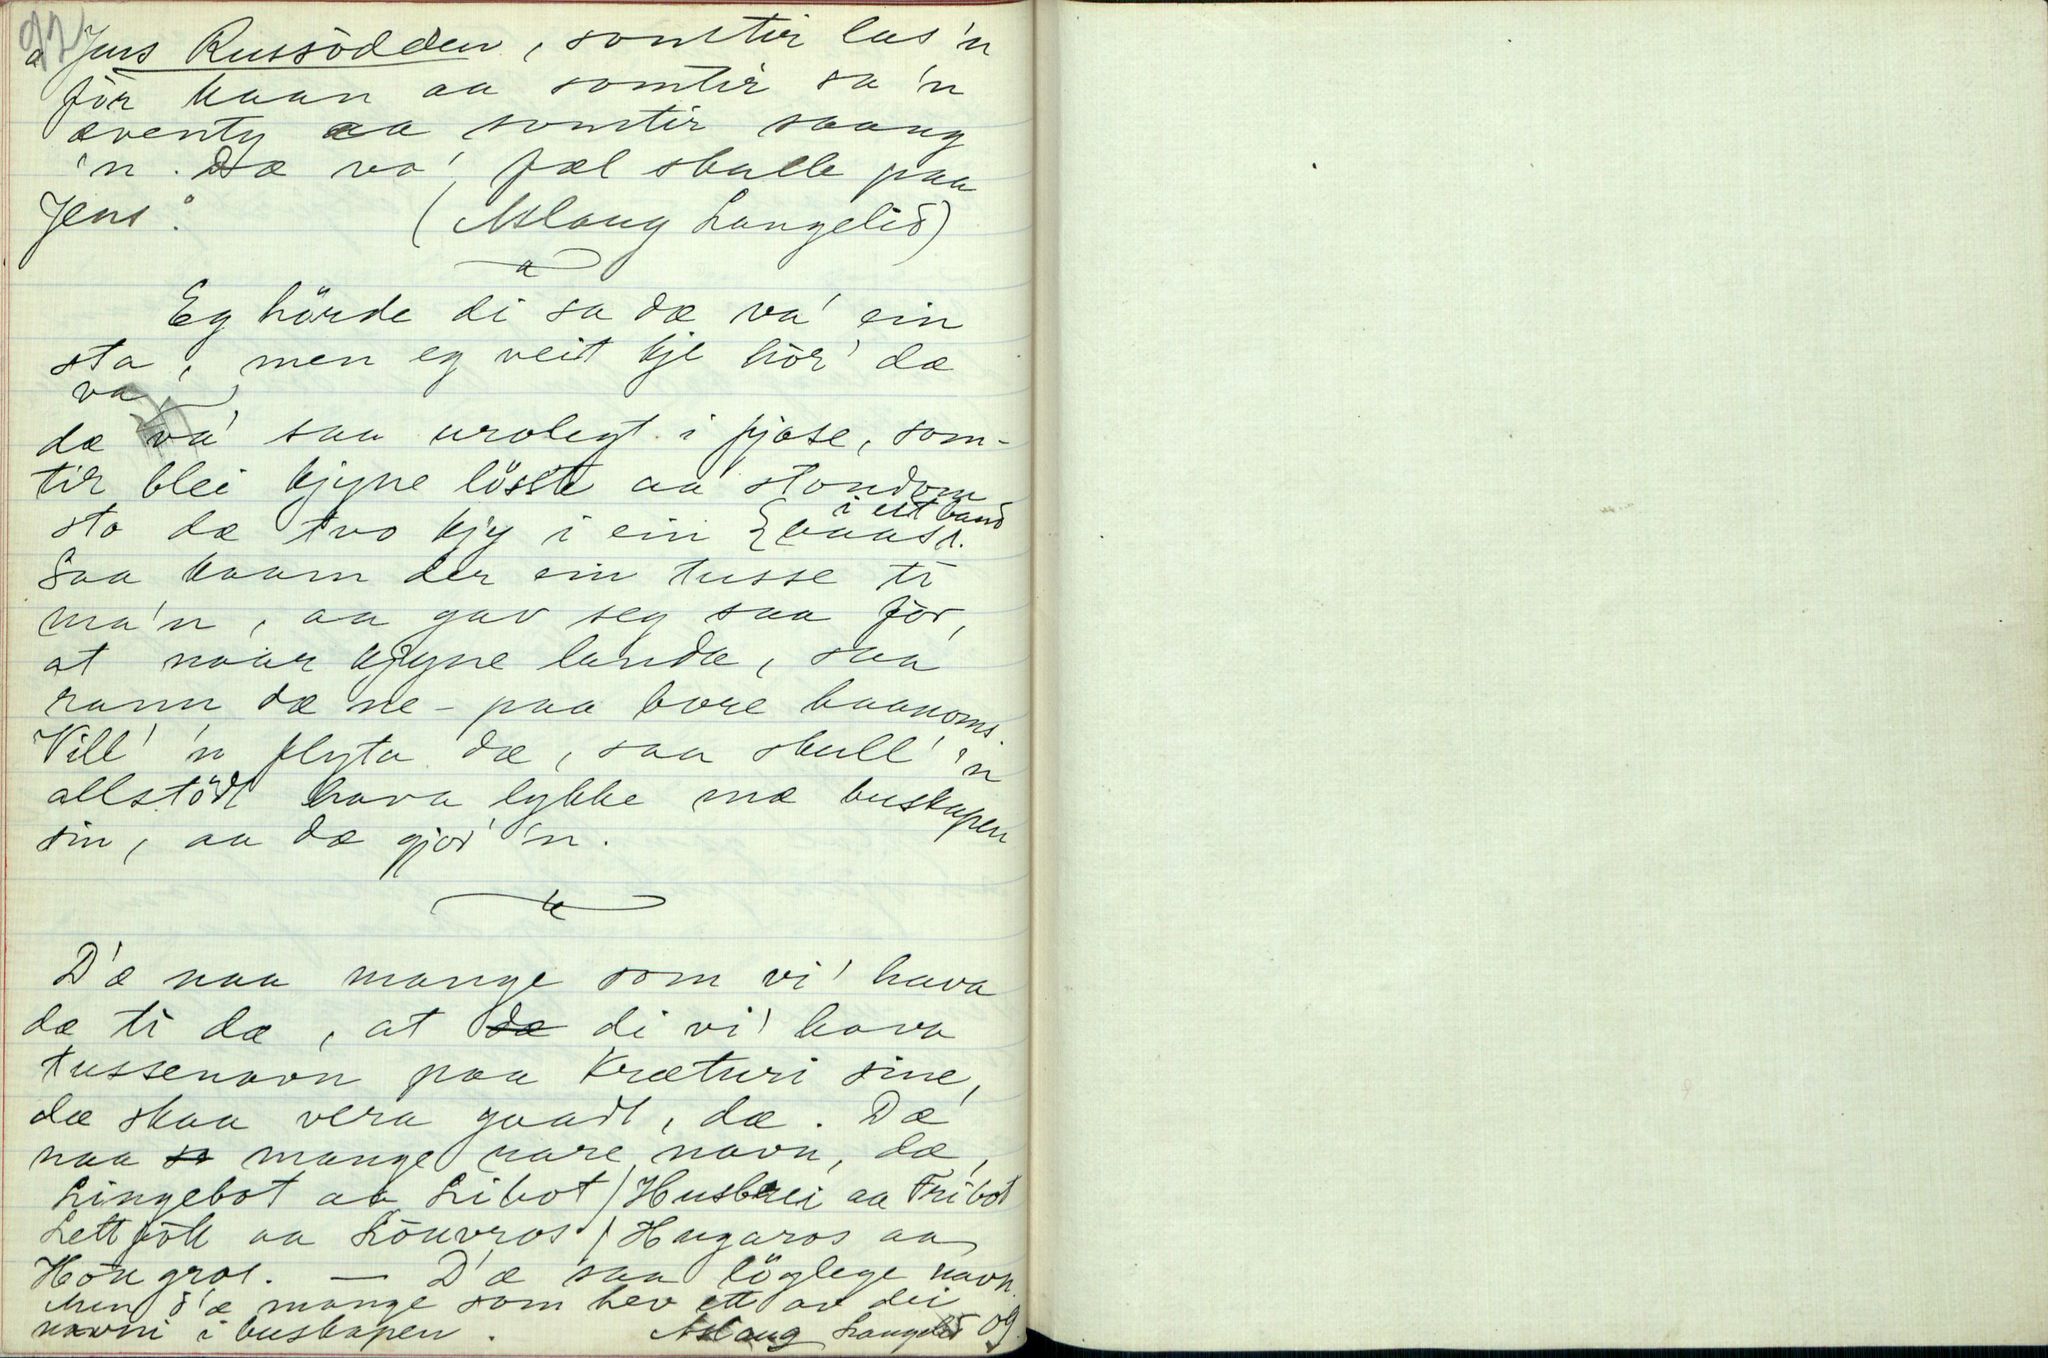 92
a Jens Russödden, somtir las'n
för kaan aa somtir sa'n
æventy aa somtir saang
'n. Dæ va' fæl skalle paa
Jens."
(Aslaug Langelid)
Eg hörde di sa dæ va' ein
sta, men eg veit kje hör' dæ
va,
dæ va' saa urolegt i fjose, som-
tir blei kjyne löste aa stondom
i eit band
sto dæ tvo kjy i ein baas.
Saa kaam der ein tusse ti
ma'n, aa gav seg saa før,
at naar kjyne landa, saa
rann dæ ne-paa bore haanoms.
Vill' 'n flyta dæ, saa skull' 'n
allstödt hava lykke mæ buskapen
sin, aa dæ gjor' 'n.
D'æ naa mange som vi' hava
dæ ti dæ, at di vi' hava
tussenavn paa kræturi sine,
dæ skaa vera goadt, dæ. D'æ
naa mange rare navn, dæ,
Lingebot aa Libot / Huskrei aa Fribot
Lettföll aa Löuvros / Hugaros aa
Höugros. — D'æ saa löglege navn.
Men d'æ mange som hev ett av dei
navni i buskapen.
Aslaug Langelid 09.